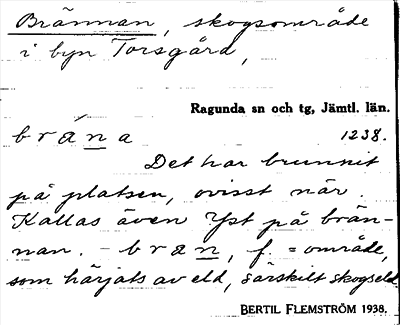 Brännan, skogsområde
i byn Torsgård,
Ragunda sn och tg, Jämtl. län.
brána 1238.
Det har brunnit
på platsen, ovisst när.
Kallas även Yst på brän-
nan. – bran, f. = område,
som härjats av eld, särskilt skogseld.
BERTIL FLEMSTRÖM 1938.